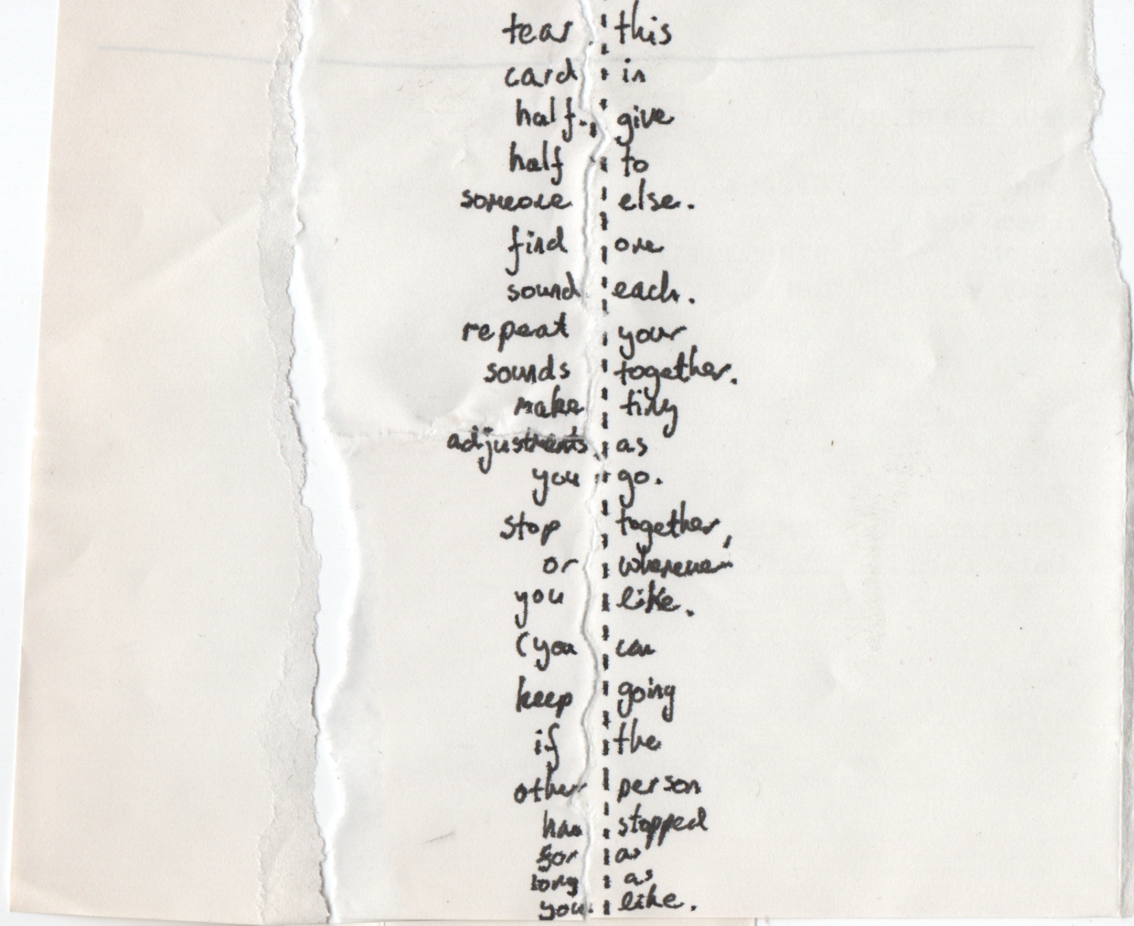 tear this
card in
half. give
half to
someone else.
find one
sound each.
repeat your
sounds together.
make tiny
adjustments as
you go.
stop together,
or whenever
you like.
(you can
keep going
if the
other person
has stopped
for as
long as
you like.